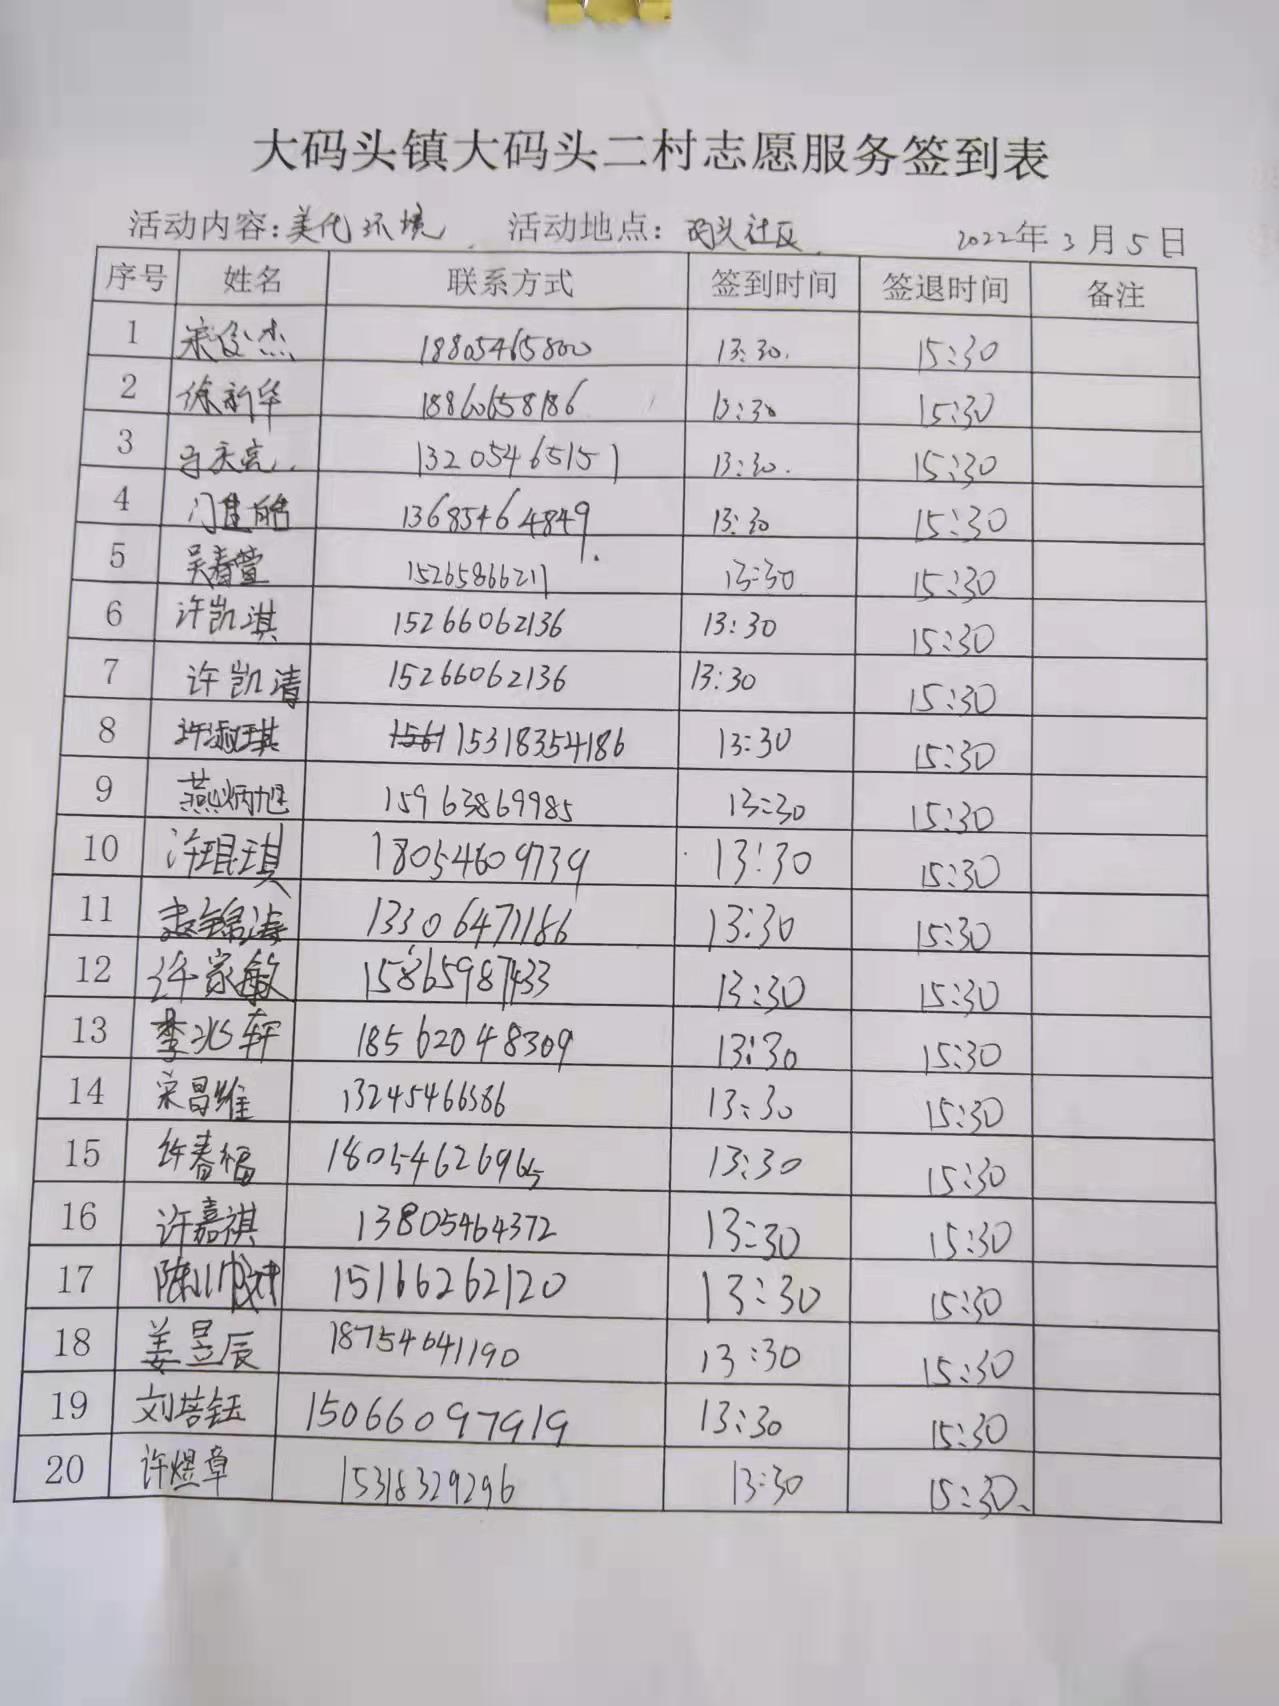 大码头镇大码头二村志愿服务签到表
活动内容:美化环境 活动地点:码头社区 2022年3月5日
序号 姓名 联系方式 签到时间 签退时间 备注
1 宋俊杰 18805465800 13:30. 15:30
2 徐新华 18860658186 13:30 15:30
3 13205465151 13:30. 15:30
4 门建皓 13685464849 13:30 15:30
5 吴春萱 15265866211 13:30 15:30
6 许凯淇 15266062136 13:30 15:30
7 许凯清 15266062136 13:30 15:30
8 许淑琪 15318354186 13:30 15:30
9 燕炳旭 15963869985 13:30 15:30
10 许琨琪 18054609739 13:30 15:30
11 13306471186 13:30 15:30
12 许家敏 15865987433 13:30 15:30
13 李兆轩 18562048309 13:30 15:30
14 宋昌维 13245466386 13:30 15:30
15 许春福 18054626965 13:30 15:30
16 许嘉祺 13805464372 13:30 15:30
17 15166262120 13:30 15:30
18 姜昱辰 18754641190 13:30 15:30
19 刘培钰 15066097919 13:30 15:30
20 许煜章 15318329296 13:30 15:30、